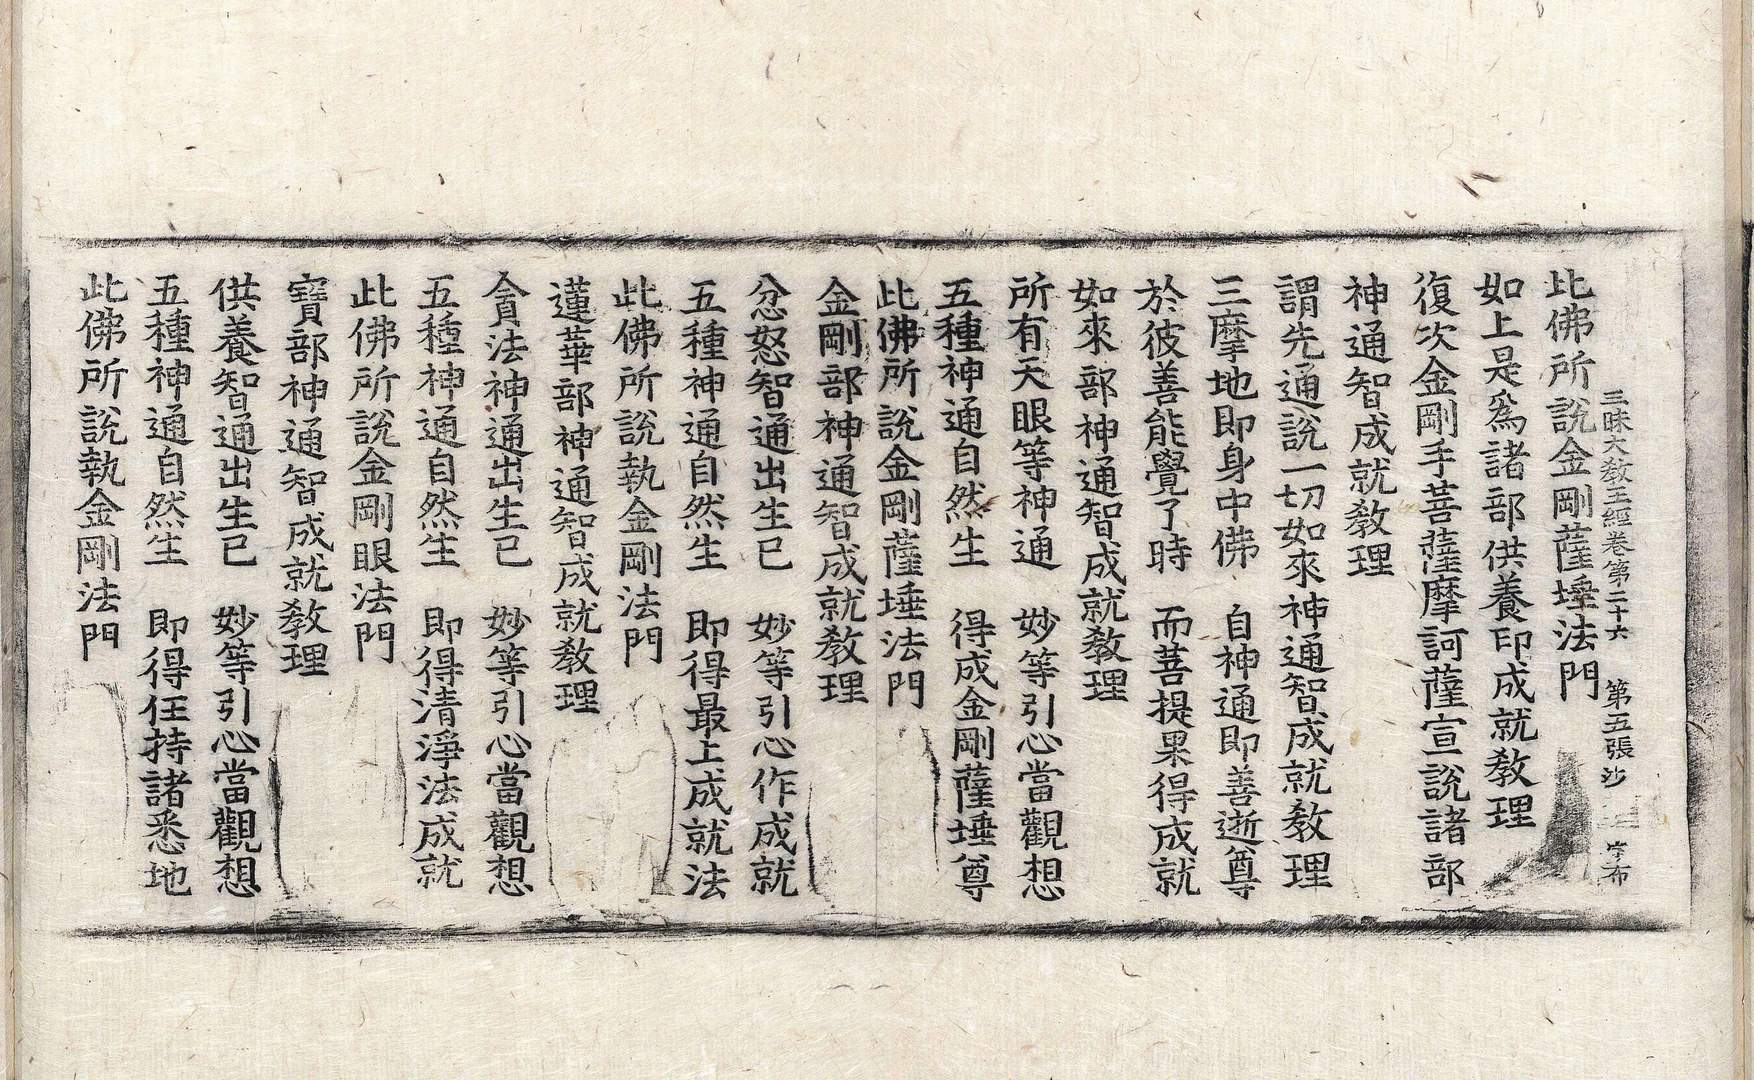 三昧大教王經卷第二十六 第五張 沙
此佛所說金剛薩埵法門
如上是為諸部供養印成就教理
復次金剛手菩薩摩訶薩宣說諸部
神通智成就教理
謂先通說一切如來神通智成就教理
三摩地即身中佛 自神通即善逝尊
於彼善能覺了時 而菩提果得成就
如來部神通智成就教理
所有天眼等神通 妙等引心當觀想
五種神通自然生 得成金剛薩埵尊
此佛所說金剛薩埵法門
金剛部神通智成就教理
忿怒智通出生已 妙等引心作成就
五種神通自然生 即得最上成就法
此佛所說執金剛法門
蓮華部神通智成就教理
貪法神通出生已 妙等引心當觀想
五種神通自然生 即得清淨法成就
此佛所說金剛眼法門
寶部神通智成就教理
供養智通出生已 妙等引心當觀想
五種神通自然生 即得任持諸悉地
此佛所說執金剛法門